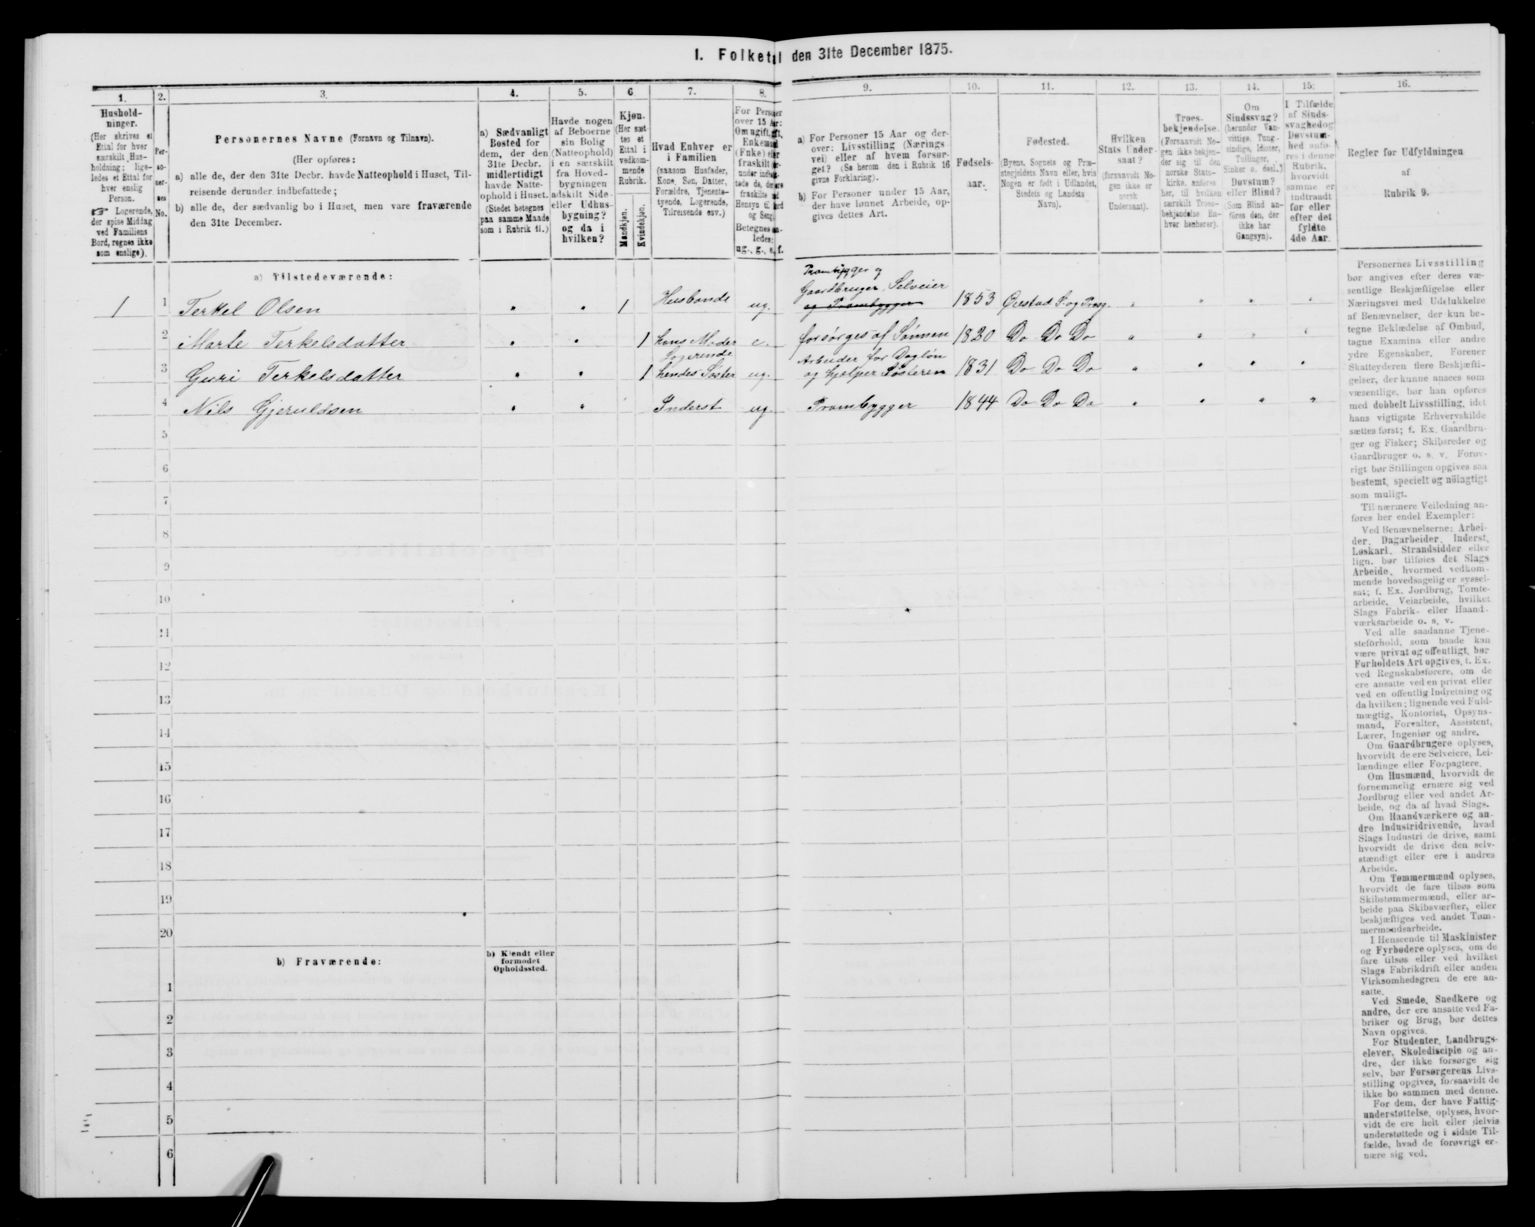 1. Folketal den 31te December 1875.
1.
2.
3.
4.
5.
6
7.
8.
9.
10.
11.
12.
13.
14.
15.
16.
Hushold-
ninger.
(Her skrives et
Ettal for hver
særskilt Hus-
holdning; lige-
ledes et Ettal for
hver enslig
Person.
☞ Logerende,
der spise Middag
ved Familiens
Bord, regnes ikke
som enslige).
Per-
so-
ner-
nes
No.
Personernes Navne (Fornavn og Tilnavn).
(Her opføres:
a) alle de, der den 31te Decbr. havde Natteophold i Huset, Til-
reisende derunder indbefattede;
b) alle de, der sædvanlig bo i Huset, men vare fraværende
den 31te December.
a) Sædvanligt
Bosted for
dem, der den
31te Decbr.
midlertidigt
havde Natte-
ophold i Huset.
(Stedet betegnes
paa samme Maade
som i Rubrik 11.)
Havde nogen
af Beboerne
sin Bolig
(Natteophold)
i en særskilt
fra Hoved-
bygningen
adskilt Side-
eller Udhus-
bygning?
og da i
hvilken?
Kjøn.
(Her sæt-
tes et
Ettal i
vedkom-
mende
Rubrik.
Mandkjøn.
Kvindekjøn.
Hvad Enhver er
i Familien
(saasom Husfader,
Kone, Søn, Datter,
Forældre, Tjeneste-
tyende, Logerende,
Tilreisende osv.)
For Personer
over 15 Aar:
Om ugift, gift,
Enkemand
(Enke) eller
fraskilt
ug., g., e., f.
a) For Personer 15 Aar og der-
over: Livsstilling (Nærings-
vei) eller af hvem forsør-
get? (Se herom den i Rubrik 16
givne Forklaring).
b) For Personer under 15 Aar,
der have lønnet Arbeide, op-
gives dettes Art.
Fødsels-
aar.
Fødested.
(Byens, Sognets og Præ-
stegjeldets Navn eller, hvis
Nogen er født i Udlandet,
Stedets og Landets
Navn).
Hvilken
Stats Under-
saat?
(forsaavidt No-
gen ikke er
norsk
Undersaat).
Troes-
bekjendelse.
(Forsaavidt No-
gen ikke bekjen-
der sig til den
norske Stats-
kirke, anføres
her, til hvilken
særskilt Troes-
bekjendelse En-
hver henhører).
Om
Sindssvag?
(herunder Van-
vittige, Tung-
sindige, Idioter,
Tullinger,
Sinker o. desl.)
Døvstum?
eller Blind?
(Som Blind an-
føres den, der
ikke har
Gangsyn).
I Tilfælde
af Sinds-
svaghed og
Døvstum-
hed anfø-
res i denne
Rubrik,
hvorvidt
samme er
indtraadt
før eller
efter det
fyldte
4de Aar.
Regler for Udfyldningen
af
Rubrik 9.
a) Tilstedeværende:
1 1 Terkel Olsen " " 1 Husbonde ug. Prambygger og Gaardbruger, Selveier og Prambygger 1853 Øiestad S. og Præg. " " " "
2 Marte Terkelsdatter " " 1 hans Moder e. forsørges af Sønnen 1820 Do Do Do " " " "
3 Guri Terkelsdatter " " 1 Logerende hendes Søster ug. Arbeider for Dagløn og hjælper Søsteren 1831 Do Do Do " " " "
4 Nils Gjeruldsen " " Inderst ug. Prambygger 1844 Do Do Do " " " "
5
6
7
8
9
10
11
12
13
14
15
16
17
18
19
20
b) Fraværende:
b) Kjendt eller
formodet
Opholdssted.
1
2
3
4
5
6
Personernes Livsstilling
bør angives efter deres væ-
sentlige Beskjæftigelse eller
Næringsvei med Udelukkelse
af Benævnelser, der kun be-
tegne Beklædelse af Ombud,
tagne Examina eller andre
ydre Egenskaber. Forener
Skatteyderen flere Beskjæfti-
gelser, der kunne ansees som
væsentlige, bør han opføres
med dobbelt Livsstilling, idet
hans vigtigste Erhvervskilde
sættes først; f. Ex. Gaardbru-
ger og Fisker; Skibsreder og
Gaardbruger o. s. v. Forøv-
rigt bør Stillingen opgives saa
bestemt, specielt og nøiagtigt
som muligt.
Til nærmere Veiledning an-
føres her endel Exempler:
Ved Benævnelserne: Arbei-
der, Dagarbeider, Inderst,
Løskarl, Strandsidder eller
lign. bør tilføies det Slags
Arbeide, hvormed vedkom-
mende hovedsagelig er syssel-
sat; f. Ex. Jordbrug, Tomte-
arbeide, Veiarbeide, hvilket
Slags Fabrik- eller Haand-
værksarbeide o. s. v.
Ved alle saadanne Tjene-
steforhold, som baade kan
være privat og offentligt, bør
Forholdets Art opgives, f. Ex.
ved Regnskabsførere, om de
ere ansatte ved en privat eller
ved en offentlig Indretning og
da hvilken; lignende ved Fuld-
mægtig, Kontorist, Opsyns-
mand, Forvalter, Assistent,
Lærer, Ingeniør og andre.
Om Gaardbrugere oplyses,
hvorvidt de ere Selveiere, Lei-
lændinge eller Forpagtere.
Om Husmænd, hvorvidt de
fornemmelig ernære sig ved
Jordbrug eller ved andet Ar-
beide, og da af hvad Slags.
Om Haandværkere og an-
dre Industridrivende, hvad
Slags Industri de drive, samt
hvorvidt de drive den selv-
stændigt eller ere i andres
Arbeide.
Om Tømmermænd oplyses,
hvorvidt de fare tilsøs som
Skibstømmermænd, eller ar-
beide paa Skibsværfter, eller
beskjæftiges ved andet Tøm-
mermandsarbeide.
I Henseende til Maskinister
og Fyrbødere oplyses, om de
fare tilsøs eller ved hvilket
Slags Fabrikdrift eller anden
Virksomhedsgren de ere an-
satte.
Ved Smede, Snedkere og
andre, der ere ansatte ved Fa-
briker og Brug, bør dettes
Navn opgives.
For Studenter, Landbrugs-
elever, Skoledisciple og an-
dre, der ikke forsørge sig
selv, bør Forsørgerens Livs-
stilling opgives, forsaavidt de
ikke bo sammen med denne.
For dem, der have Fattig-
understøttelse, oplyses, hvor-
vidt de ere helt eller delvis
understøttede og i sidste Til-
fælde, hvad de forøvrigt er-
nære sig ved.